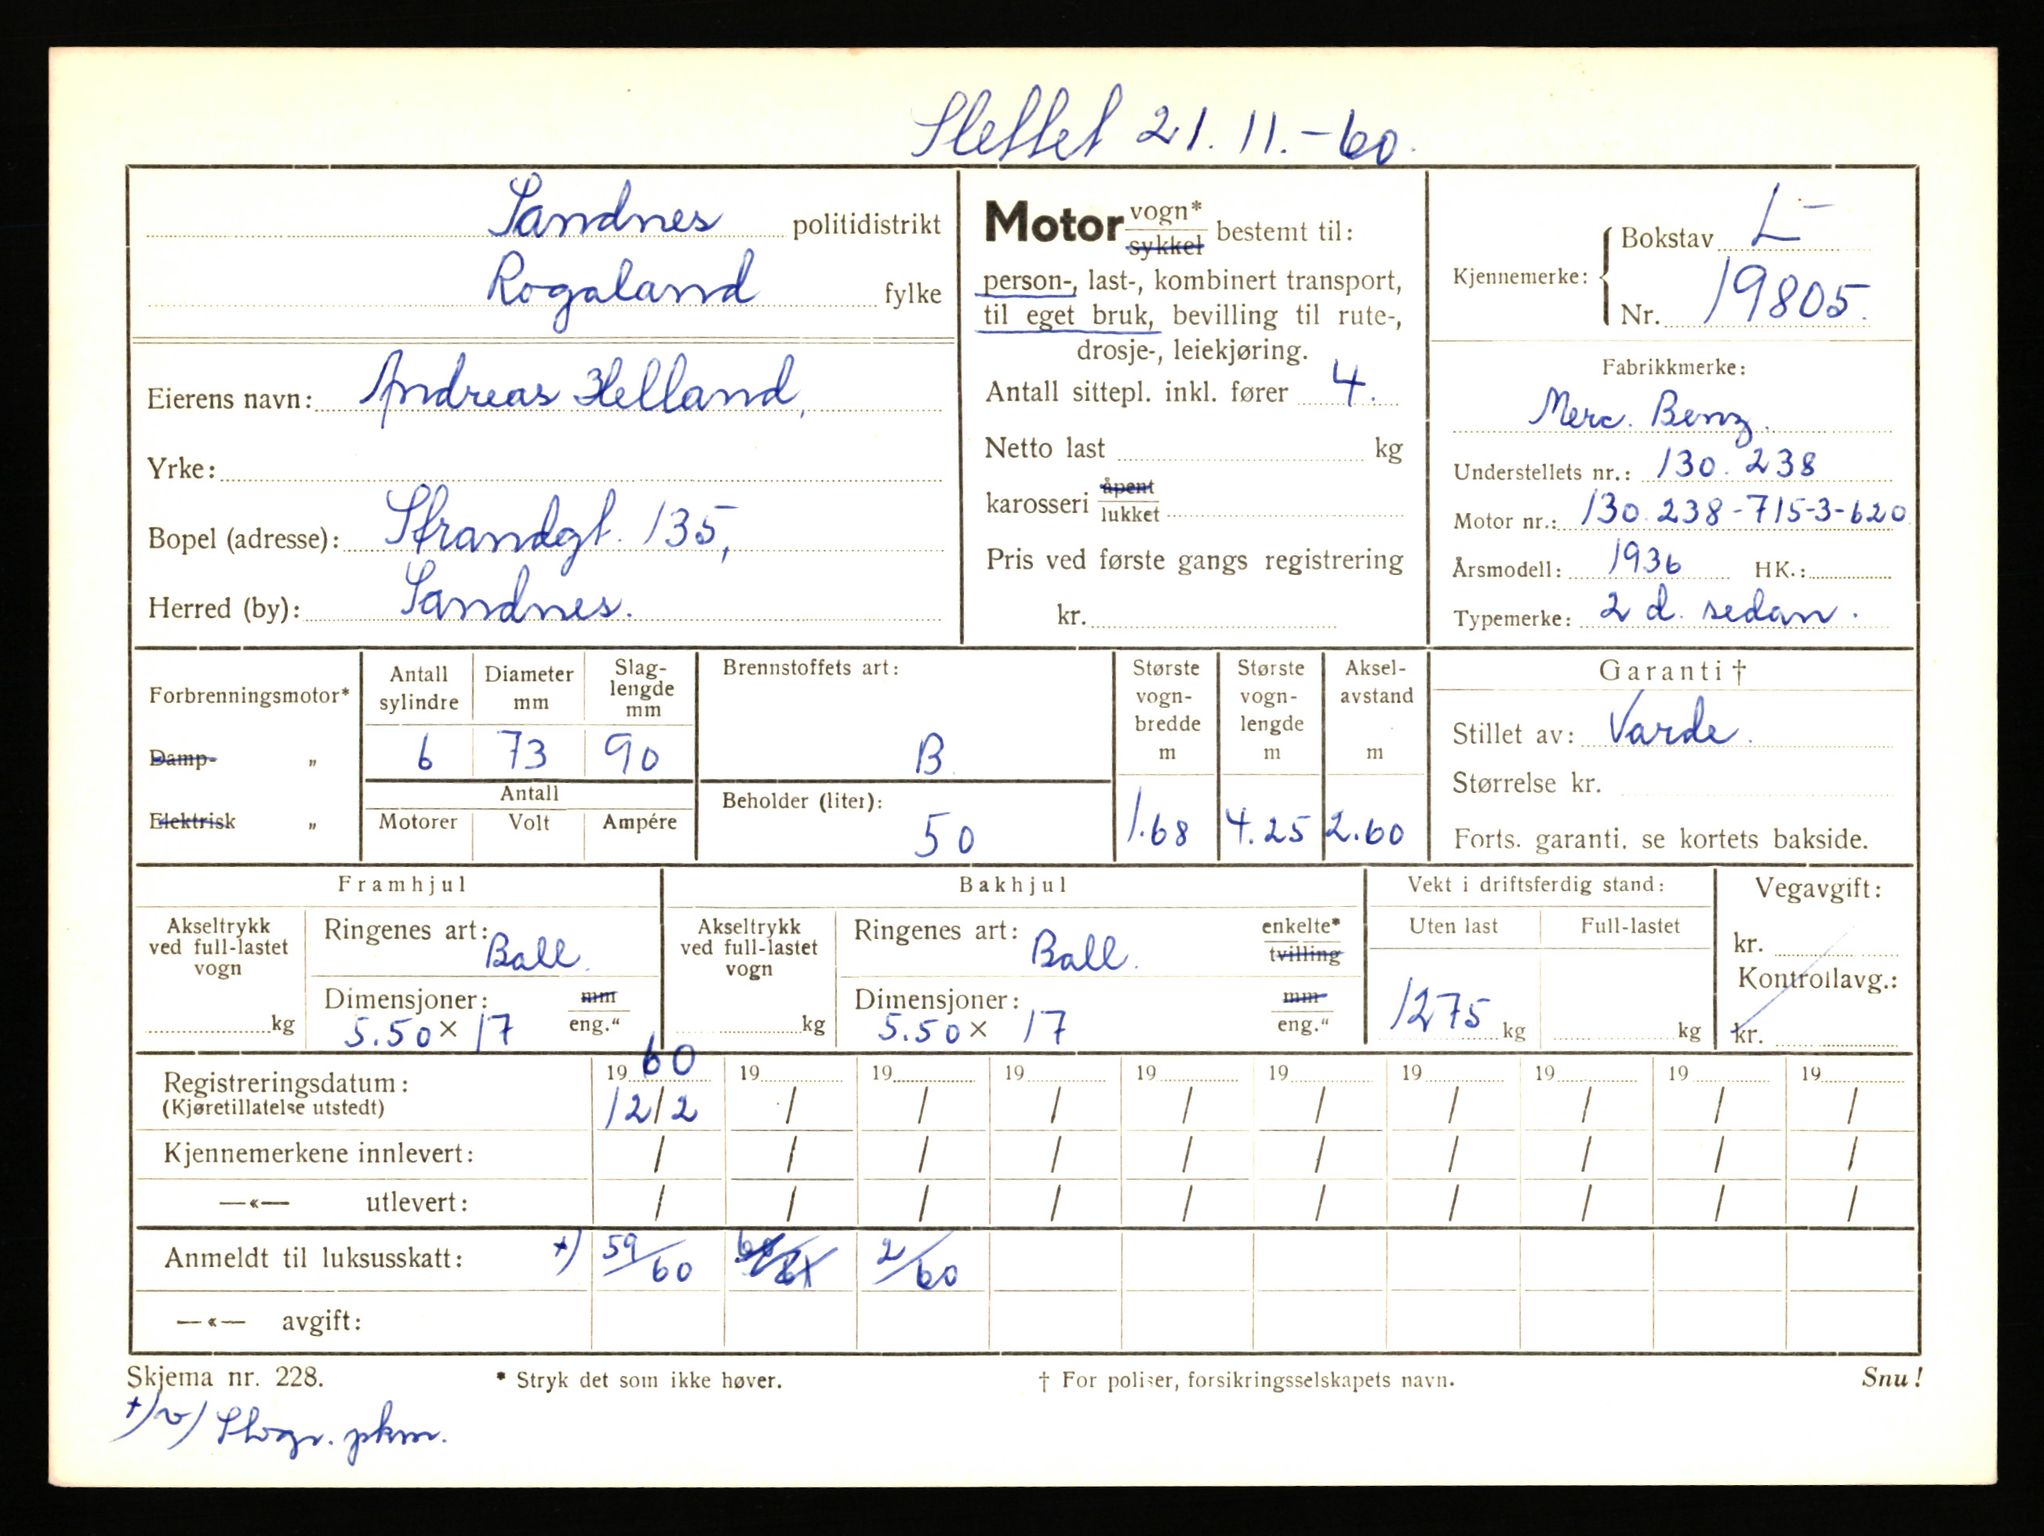 Slettet 21.11.-60.
Sandnes politidistrikt
Rogaland fylke
Eierens navn: Andreas Helland,
Yrke:
Bopel (adresse): Strandgt. 135,
Herred (by): Sandnes.
Motor vogn* sykkel bestemt til:
person-, last-, kombinert transport,
til eget bruk, bevilling til rute-,
drosje-, leiekjøring.
Antall sittepl. inkl. fører 4.
Netto last kg
karosseri åpent lukket
Pris ved første gangs registrering
kr.
Kjennemerke: Bokstav L-
Nr. 19805.
Fabrikkmerke:
Merc. Benz.
Understellets nr.: 130.238
Motor nr.: 130.238-715-3-620
Årsmodell: 1936 HK.:
Typemerke: 2 d. sedan.
Forbrenningsmotor*
Damp- "
Elektrisk "
Antall sylindre
Diameter mm
Slag-lengde mm
6 73 90
Antall
Motorer Volt Ampére
Brennstoffets art:
B
Beholder (liter):
50
Største vogn-bredde m
1.68
Største vogn-lengde m
4.25
Aksel-avstand m
2.60
Garanti †
Stillet av: Varde.
Størrelse kr.
Forts. garanti. se kortets bakside.
Framhjul
Akseltrykk ved full-lastet vogn
kg
Ringenes art: Ball.
Dimensjoner: mm
5.50 × 17 eng."
Bakhjul
Akseltrykk ved full-lastet vogn
kg
Ringenes art: Ball. enkelte* tvilling
Dimensjoner: mm
5.50 × 17 eng."
Vekt i driftsferdig stand:
Uten last Full-lastet
1275 kg kg
Vegavgift:
kr.
Kontrollavg.:
kr.
Registreringsdatum: 19 60 19 19 19 19 19 19 19 19 19
(Kjøretillatelse utstedt) 12/2 / / / / / / / / /
Kjennemerkene innlevert: / / / / / / / / / /
—«— utlevert: / / / / / / / / / /
Anmeldt til luksusskatt: +) 59/60 60/61 2/60
—«— avgift:
Skjema nr. 228. * Stryk det som ikke høver. † For poliser, forsikringsselskapets navn. Snu!
pkm.